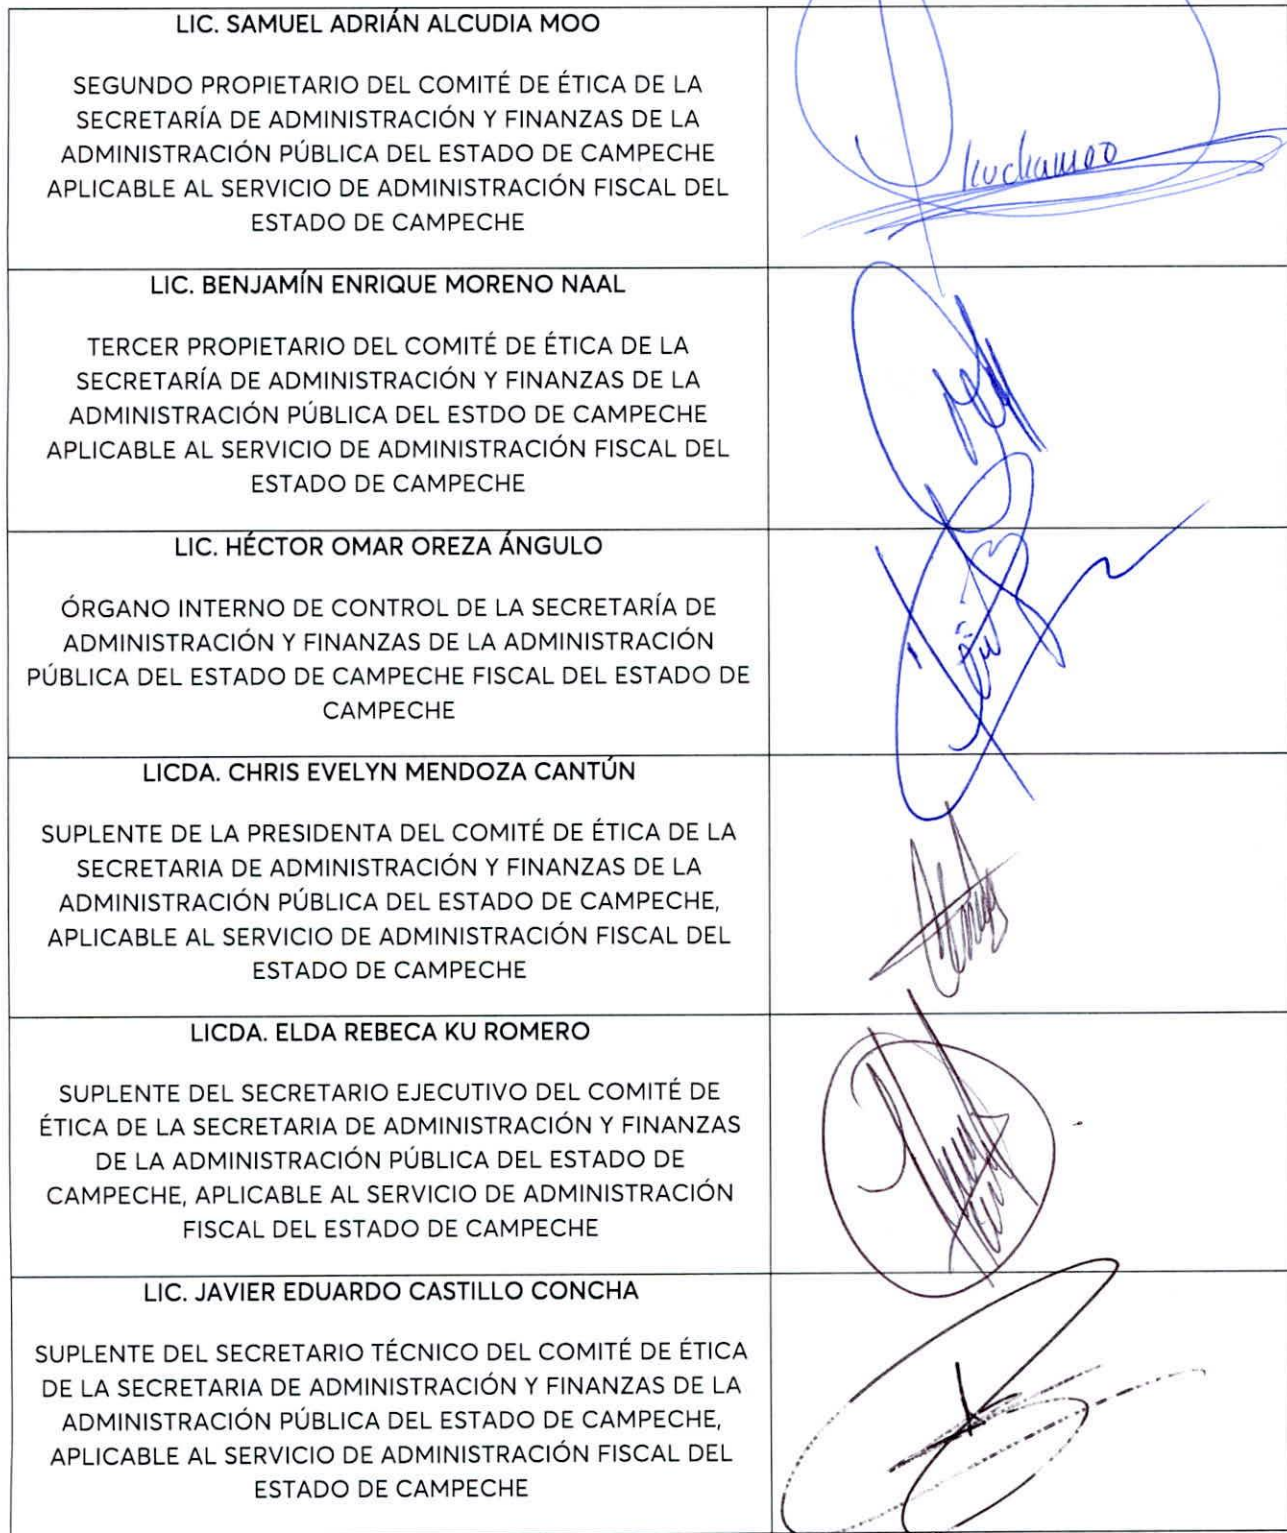 LIC. SAMUEL ADRIÁN ALCUDIA MOO
SEGUNDO PROPIETARIO DEL COMITÉ DE ÉTICA DE LA
SECRETARÍA DE ADMINISTRACIÓN Y FINANZAS DE LA
ADMINISTRACIÓN PÚBLICA DEL ESTADO DE CAMPECHE
APLICABLE AL SERVICIO DE ADMINISTRACIÓN FISCAL DEL
ESTADO DE CAMPECHE
LIC. BENJAMÍN ENRIQUE MORENO NAAL
TERCER PROPIETARIO DEL COMITÉ DE ÉTICA DE LA
SECRETARÍA DE ADMINISTRACIÓN Y FINANZAS DE LA
ADMINISTRACIÓN PÚBLICA DEL ESTDO DE CAMPECHE
APLICABLE AL SERVICIO DE ADMINISTRACIÓN FISCAL DEL
ESTADO DE CAMPECHE
LIC. HÉCTOR OMAR OREZA ÁNGULO
ÓRGANO INTERNO DE CONTROL DE LA SECRETARÍA DE
ADMINISTRACIÓN Y FINANZAS DE LA ADMINISTRACIÓN
PÚBLICA DEL ESTADO DE CAMPECHE FISCAL DEL ESTADO DE
CAMPECHE
LICDA. CHRIS EVELYN MENDOZA CANTÚN
SUPLENTE DE LA PRESIDENTA DEL COMITÉ DE ÉTICA DE LA
SECRETARIA DE ADMINISTRACIÓN Y FINANZAS DE LA
ADMINISTRACIÓN PÚBLICA DEL ESTADO DE CAMPECHE,
APLICABLE AL SERVICIO DE ADMINISTRACIÓN FISCAL DEL
ESTADO DE CAMPECHE
LICDA. ELDA REBECA KU ROMERO
SUPLENTE DEL SECRETARIO EJECUTIVO DEL COMITÉ DE
ÉTICA DE LA SECRETARIA DE ADMINISTRACIÓN Y FINANZAS
DE LA ADMINISTRACIÓN PÚBLICA DEL ESTADO DE
CAMPECHE, APLICABLE AL SERVICIO DE ADMINISTRACIÓN
FISCAL DEL ESTADO DE CAMPECHE
LIC. JAVIER EDUARDO CASTILLO CONCHA
SUPLENTE DEL SECRETARIO TÉCNICO DEL COMITÉ DE ÉTICA
DE LA SECRETARIA DE ADMINISTRACIÓN Y FINANZAS DE LA
ADMINISTRACIÓN PÚBLICA DEL ESTADO DE CAMPECHE,
APLICABLE AL SERVICIO DE ADMINISTRACIÓN FISCAL DEL
ESTADO DE CAMPECHE